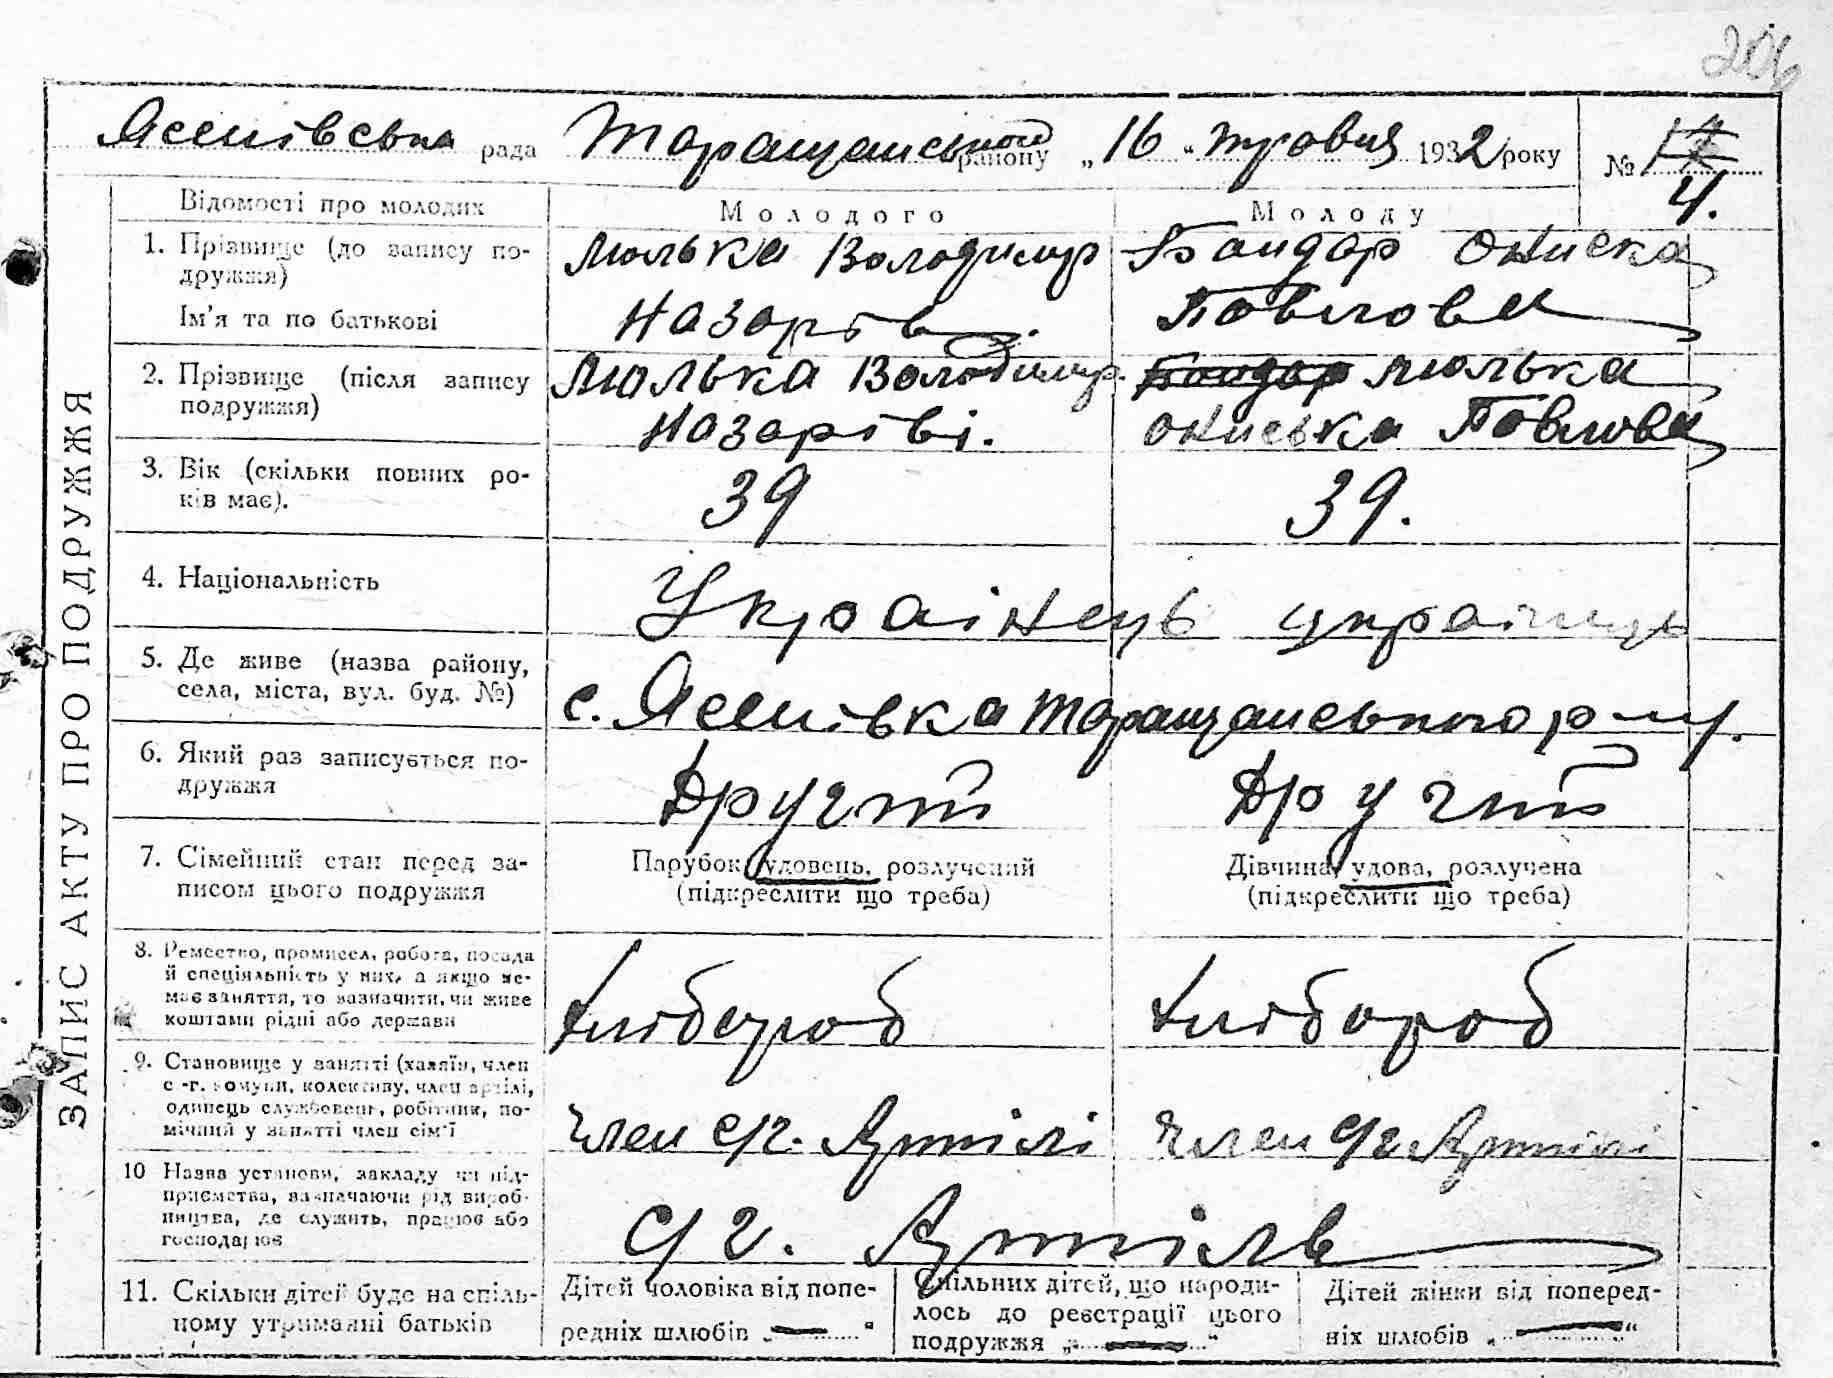 206
Ясенівська рада Таращанського району „16“ травня 1932 року № 17
4.
ЗАПИС АКТУ ПРО ПОДРУЖЖЯ
Відомості про молодих Молодого Молоду
1. Прізвище (до запису по-
дружжя)
Ім'я та по батькові
Люлька Володимир
Назарів.
Бондар Ониска
Павлова
2. Прізвище (після запису
подружжя)
Люлька Володимир.
Назарові.
Бондар Люлька
Ониська Павлова
3. Вік (скільки повних ро-
ків має).
39
39.
4. Національність
Українець українець
5. Де живе (назва району,
села, міста, вул. буд. №)
с. Ясенівка Таращанського р-ну.
6. Який раз записується по-
дружжя
Другий
Другий
7. Сімейний стан перед за-
писом цього подружжя
Парубок, удовець, розлучений
(підкреслити що треба)
Дівчина, удова, розлучена
(підкреслити що треба)
8. Ремество, промисел, робота, посада
й спеціяльність у них, а якщо не-
має заняття, то зазначити, чи живе
коштами рідні або держави
Хлібороб
Хлібороб
9. Становище у занятті (хазяїн, член
с.-г. комуни, колективу, член артілі,
одинець службовець, робітник, по-
мічний у занятті член сім'ї
член с/г. Артілі
член с/г Артілі
10 Назва установи, закладу чи під-
приємства, зазначаючи рід вироб-
ництва, де служить, працює або
господарює
с/г. Артіль
11. Скільки дітей буде на спіль-
ному утриманні батьків
Дітей чоловіка від попе-
редніх шлюбів „—“
Спільних дітей, що народи-
лось до реєстрації цього
подружжя „—“
Дітей жінки від поперед-
ніх шлюбів „—“